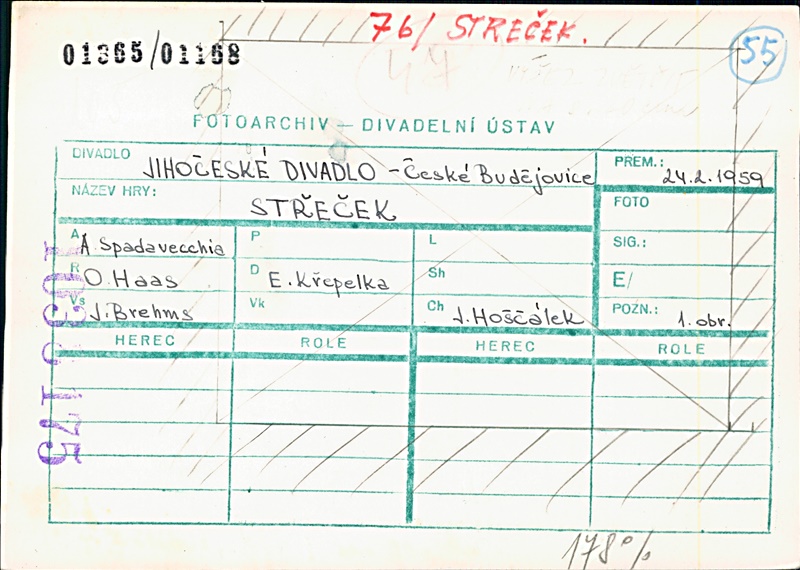 76/ STREČEK.
55
01365/01168
47
FOTOARCHIV — DIVADELNÍ ÚSTAV
DIVADLO JIHOČESKÉ DIVADLO - České Budějovice
PREM.: 24.2.1959
NÁZEV HRY: STŘEČEK
FOTO
A A. Spadavecchia P L SIG.:
R O. Haas D E. Křepelka Sh E/
Vs J. Brehms Vk Ch J. Hoščálek POZN.: 1. obr.
HEREC ROLE HEREC ROLE
178%